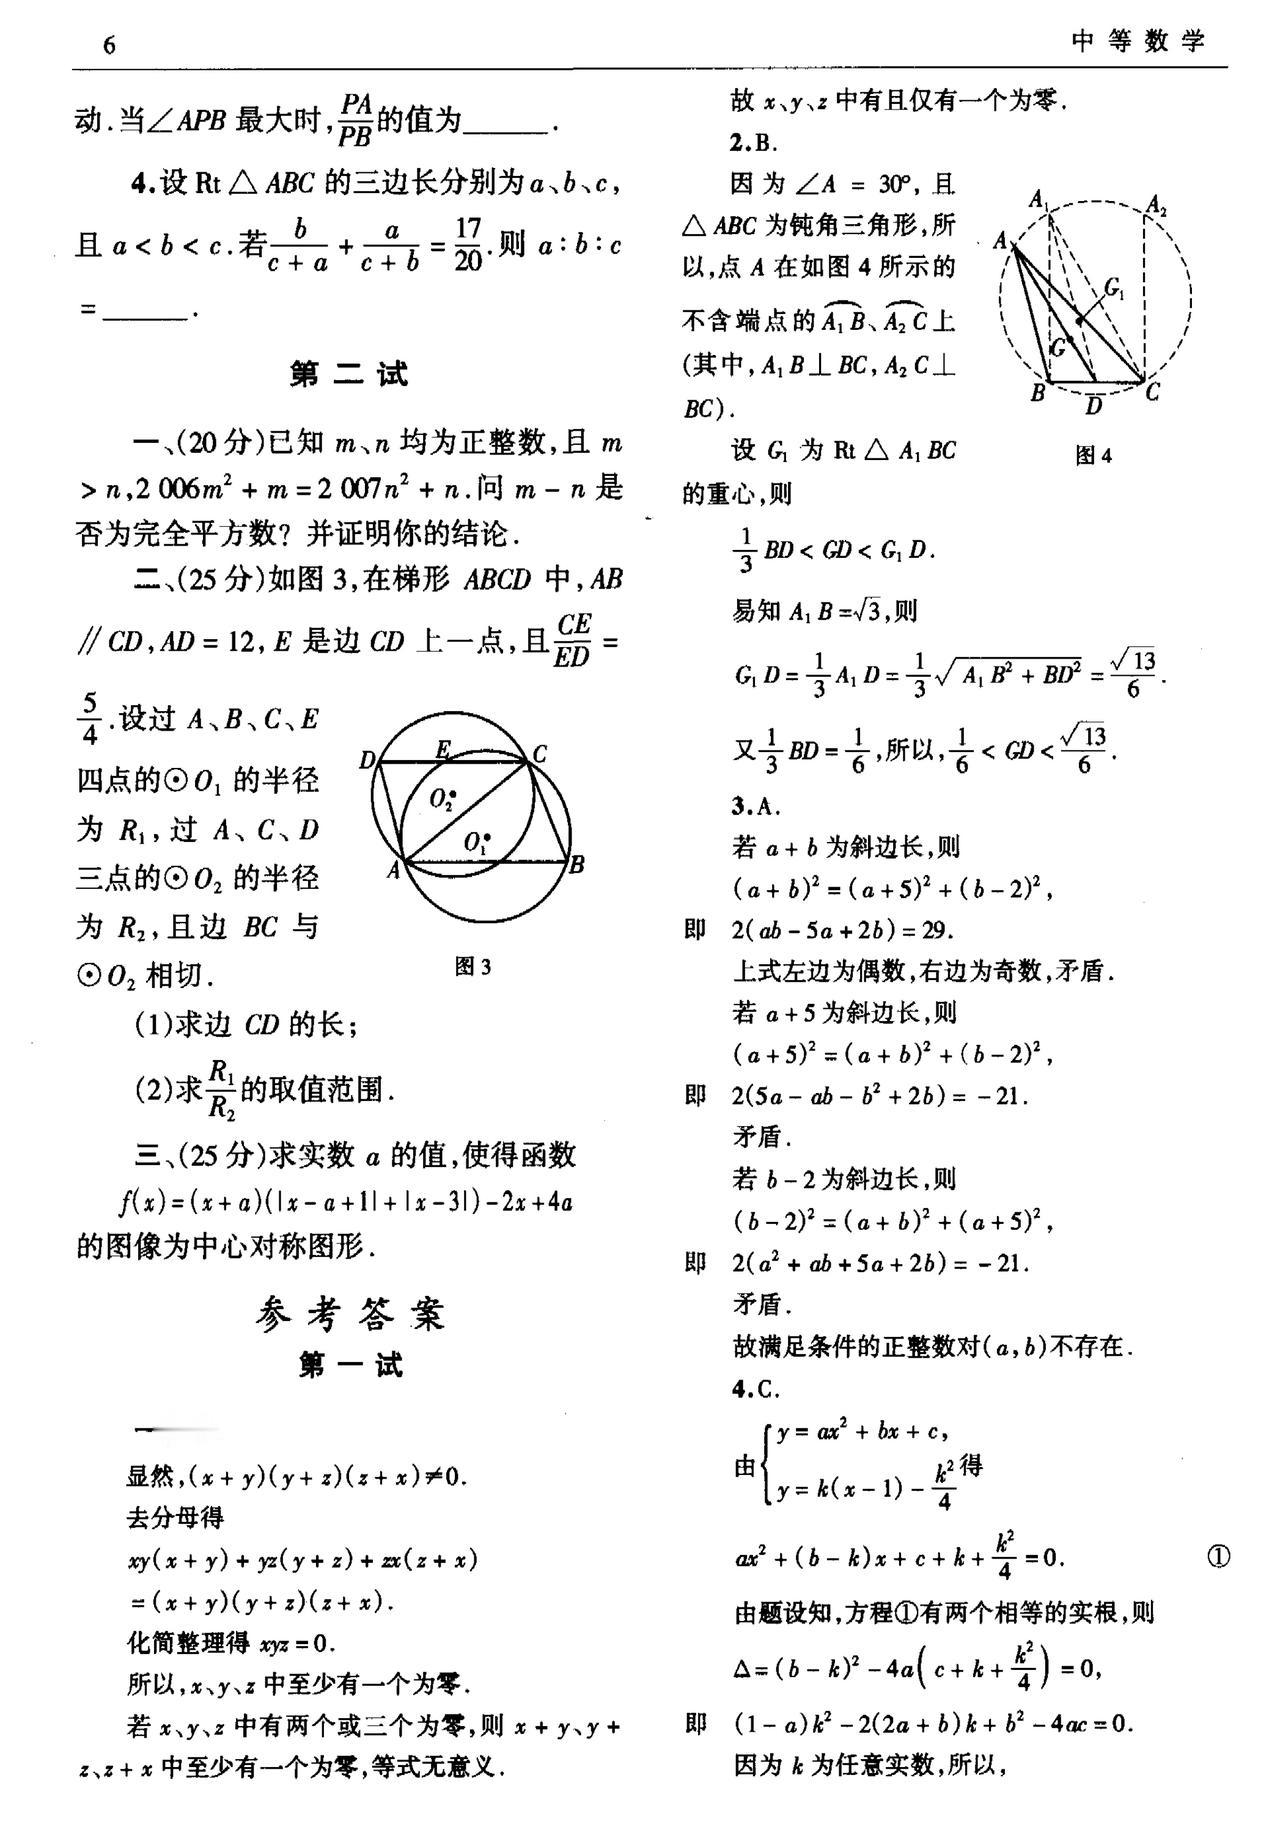 6
中等数学
动.当∠APB 最大时,PA/PB的值为______.
4.设 Rt△ABC 的三边长分别为a、b、c,
且 a<b<c.若b/(c+a)+a/(c+b)=17/20.则 a:b:c
=______.
第二试
一、(20分)已知 m、n 均为正整数,且 m
>n,2 006m²+m=2 007n²+n.问 m-n 是
否为完全平方数? 并证明你的结论.
二、(25分)如图3,在梯形 ABCD 中,AB
∥CD,AD=12,E 是边 CD 上一点,且CE/ED=
5/4.设过 A、B、C、E
四点的⊙O₁ 的半径
为 R₁,过 A、C、D
三点的⊙O₂ 的半径
为 R₂,且边 BC 与
⊙O₂ 相切.
D E C
O₂
O₁
A B
图3
(1)求边 CD 的长;
(2)求R₁/R₂的取值范围.
三、(25分)求实数 a 的值,使得函数
f(x)=(x+a)(|x-a+1|+|x-3|)-2x+4a
的图像为中心对称图形.
参考答案
第一试
一
显然,(x+y)(y+z)(z+x)≠0.
去分母得
xy(x+y)+yz(y+z)+zx(z+x)
=(x+y)(y+z)(z+x).
化简整理得 xyz=0.
所以,x、y、z 中至少有一个为零.
若 x、y、z 中有两个或三个为零,则 x+y、y+
z、z+x 中至少有一个为零,等式无意义.
故 x、y、z 中有且仅有一个为零.
2.B.
因为∠A = 30°,且
△ABC 为钝角三角形,所
以,点 A 在如图4所示的
不含端点的A₁B、A₂C上
(其中,A₁B⊥BC,A₂C⊥
BC).
A₁ A₂
A
G₁
G
B D C
图4
设 G₁ 为 Rt△A₁BC
的重心,则
1/3 BD<GD<G₁D.
易知 A₁B=√3,则
G₁D=1/3 A₁D=1/3 √(A₁B²+BD²)=√13/6.
又1/3 BD=1/6,所以,1/6<GD<√13/6.
3.A.
若 a+b 为斜边长,则
(a+b)²=(a+5)²+(b-2)²,
即 2(ab-5a+2b)=29.
上式左边为偶数,右边为奇数,矛盾.
若 a+5为斜边长,则
(a+5)²=(a+b)²+(b-2)²,
即 2(5a-ab-b²+2b)=-21.
矛盾.
若 b-2为斜边长,则
(b-2)²=(a+b)²+(a+5)²,
即 2(a²+ab+5a+2b)=-21.
矛盾.
故满足条件的正整数对(a,b)不存在.
4.C.
由{y=ax²+bx+c,
y=k(x-1)-k²/4 得
ax²+(b-k)x+c+k+k²/4=0. ①
由题设知,方程①有两个相等的实根,则
Δ=(b-k)²-4a(c+k+k²/4)=0,
即 (1-a)k²-2(2a+b)k+b²-4ac=0.
因为 k 为任意实数,所以,